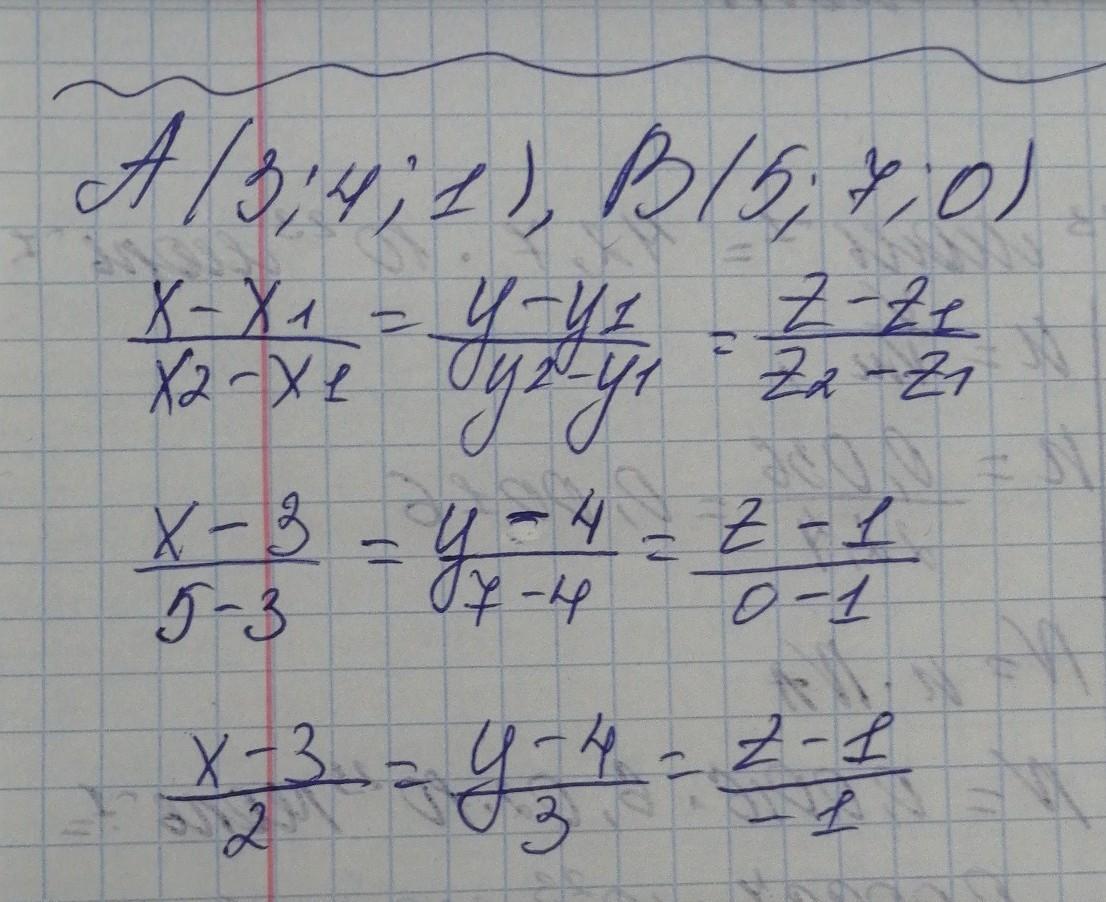 A(3; 4; 1), B(5; 7; 0)
(x-x1)/(x2-x1) = (y-y1)/(y2-y1) = (z-z1)/(z2-z1)
(x-3)/(5-3) = (y-4)/(7-4) = (z-1)/(0-1)
(x-3)/2 = (y-4)/3 = (z-1)/-1